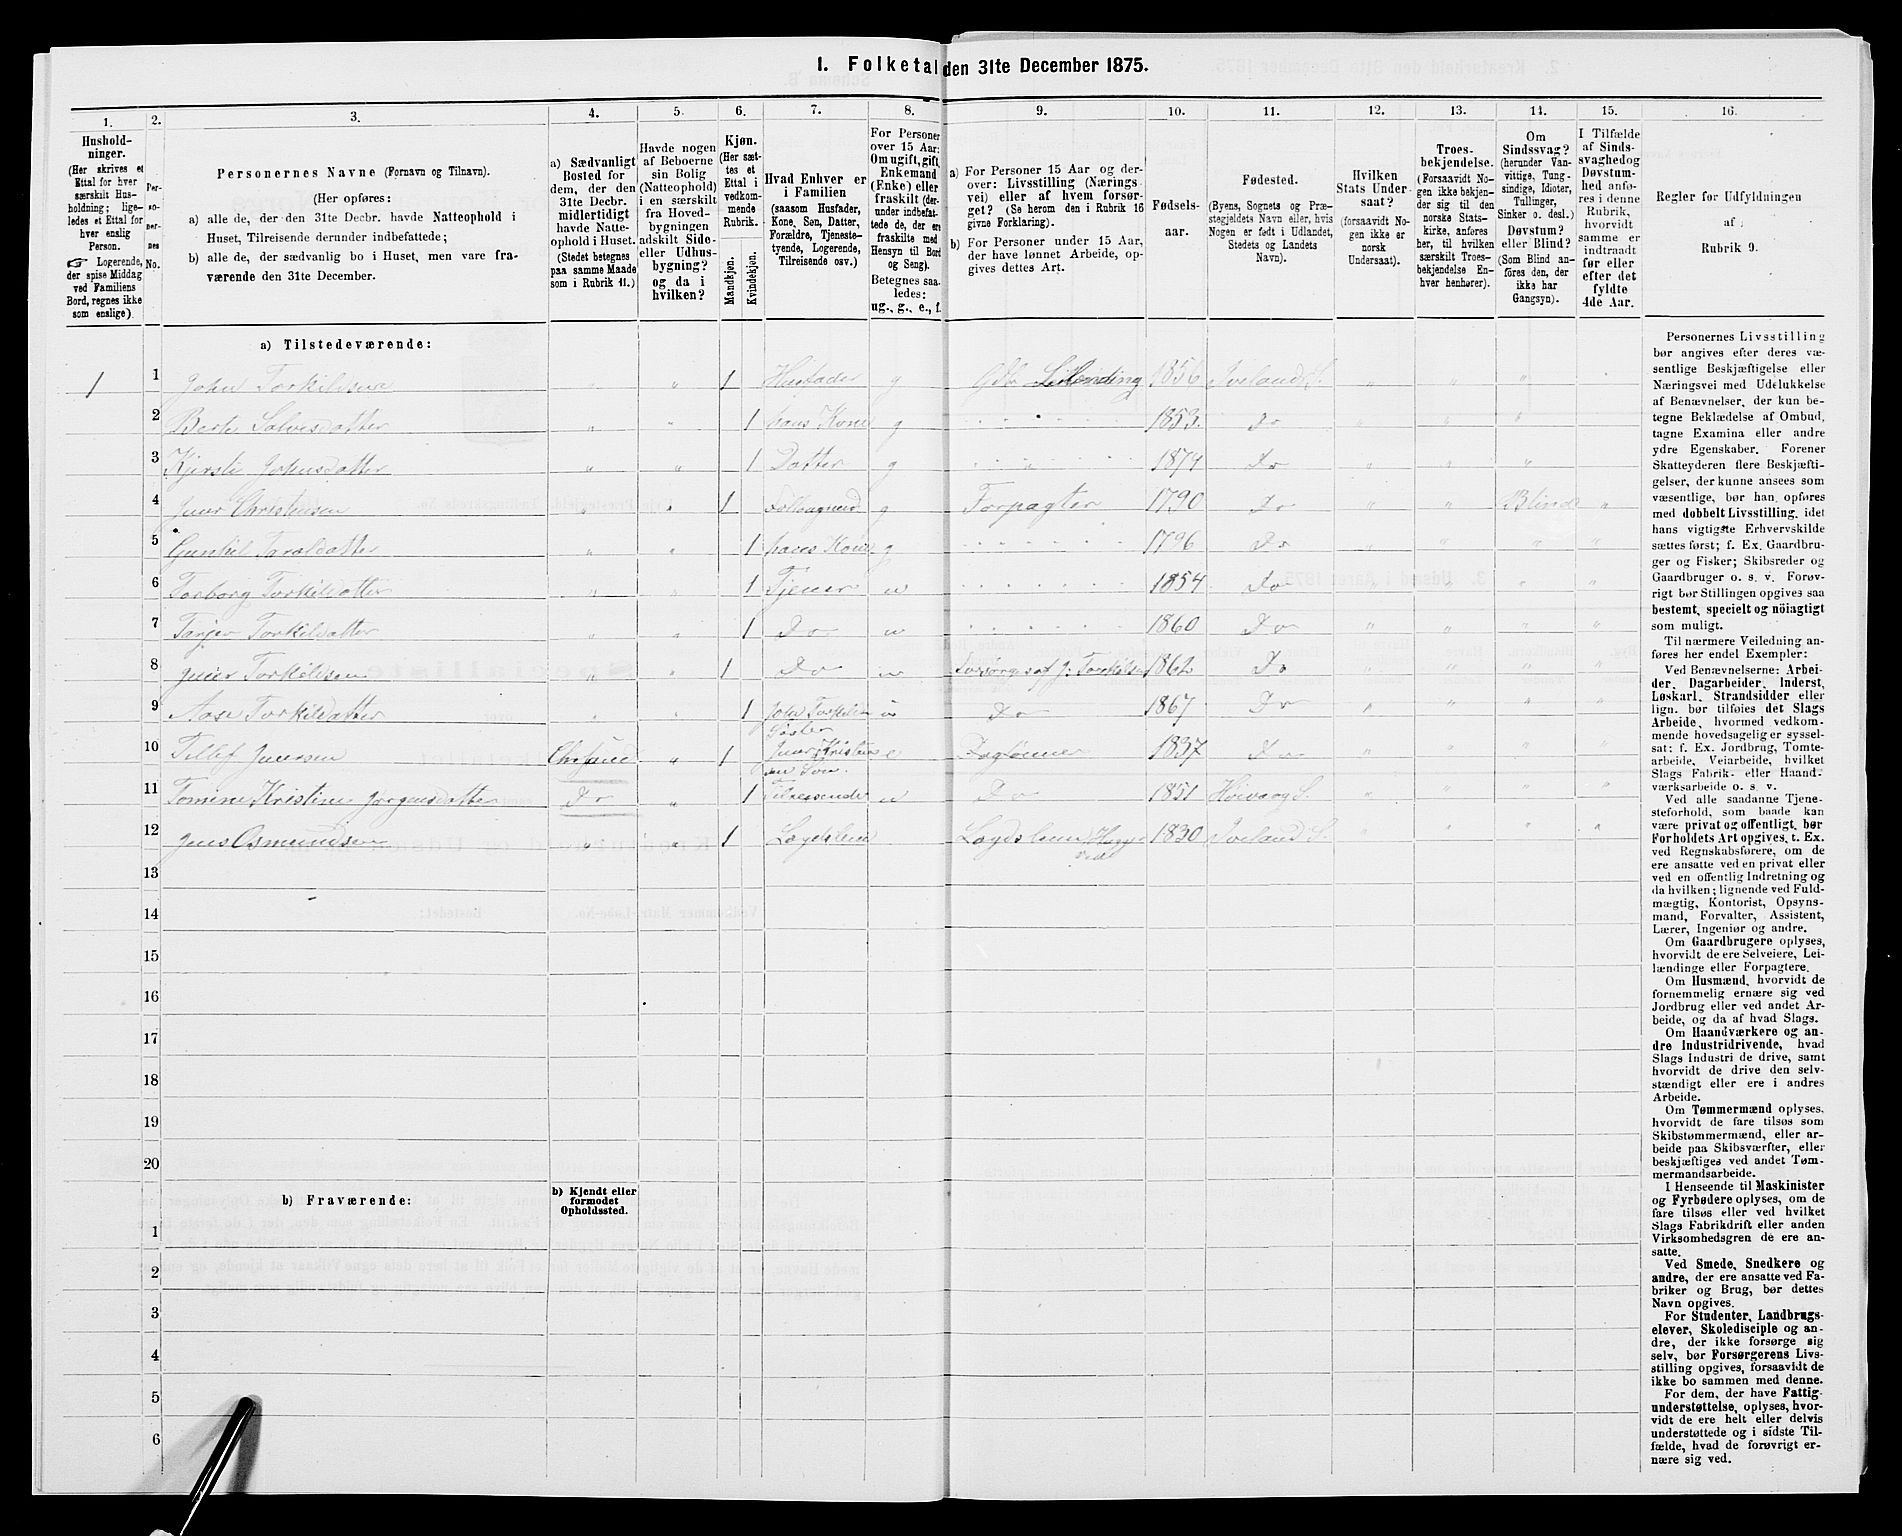 1. Folketal den 31te December 1875.
1. 2. 3. 4. 5. 6. 7. 8. 9. 10. 11. 12. 13. 14. 15. 16.
Hushold-
ninger.
(Her skrives et
Ettal for hver
særskilt Hus-
holdning; lige-
ledes et Ettal for
hver enslig
Person.
☞ Logerende,
der spise Middag
ved Familiens
Bord, regnes ikke
som enslige).
Per-
so-
ner-
nes
No.
Personernes Navne (Fornavn og Tilnavn).
(Her opføres:
a) alle de, der den 31te Decbr. havde Natteophold i
Huset, Tilreisende derunder indbefattede;
b) alle de, der sædvanlig bo i Huset, men vare fra-
værende den 31te December.
a) Sædvanligt
Bosted for
dem, der den
31te Decbr.
midlertidigt
havde Natte-
ophold i Huset.
(Stedet betegnes
paa samme Maade
som i Rubrik 11.)
Havde nogen
af Beboerne
sin Bolig
(Natteophold)
i en særskilt
fra Hoved-
bygningen
adskilt Side-
eller Udhus-
bygning?
og da i
hvilken?
Kjøn.
(Her sæt-
tes et
Ettal i
vedkom-
mende
Rubrik.
Mandkjøn.
Kvindekjøn.
Hvad Enhver er
i Familien
(saasom Husfader,
Kone, Søn, Datter,
Forældre, Tjeneste-
tyende, Logerende,
Tilreisende osv.)
For Personer
over 15 Aar:
Om ugift, gift,
Enkemand
(Enke) eller
fraskilt (der-
under indbefat-
tede de, der ere
fraskilte med
Hensyn til Bord
og Seng).
Betegnes saa-
ledes:
ug., g., e., f.
a) For Personer 15 Aar og der-
over: Livsstilling (Nærings-
vei) eller af hvem forsør-
get? (Se herom den i Rubrik 16
givne Forklaring).
b) For Personer under 15 Aar,
der have lønnet Arbeide, op-
gives dettes Art.
Fødsels-
aar.
Fødested.
(Byens, Sognets og Præ-
stegjeldets Navn eller, hvis
Nogen er født i Udlandet,
Stedets og Landets
Navn).
Hvilken
Stats Under-
saat?
(forsaavidt No-
gen ikke er
norsk
Undersaat).
Troes-
bekjendelse.
(Forsaavidt No-
gen ikke bekjen-
der sig til den
norske Stats-
kirke, anføres
her, til hvilken
særskilt Troes-
bekjendelse En-
hver henhører).
Om
Sindssvag?
(herunder Van-
vittige, Tung-
sindige, Idioter,
Tullinger,
Sinker o. desl.)
Døvstum?
eller Blind?
(Som Blind an-
føres den, der
ikke har
Gangsyn).
I Tilfælde
af Sinds-
svaghedog
Døvstum-
hed anfø-
res i denne
Rubrik,
hvorvidt
samme er
indtraadt
før eller
efter det
fyldte
4de Aar.
Regler for Udfyldningen
af
Rubrik 9.
a) Tilstedeværende:
1 1 John Torkildsen 1 Husfader g Gdb Leilending 1856 Iveland S.
2 Berte Salvesdatter 1 hans Kone g 1853 Do
3 Kjersti Johnsdatter 1 Datter g 1874 Do
4 Christensen 1 g Forpagter 1790 Do Blind
5 Gunhil Taraldatter 1 hans Kone g 1796 Do
6 Torborg Torkildatter 1 Tjener u 1854 Do
7 Tarjer Torkildatter 1 Do u 1860 Do
8 Torkildsen 1 Do u Forsörges af J: Torkelsen 1862 Do
9 Aase Torkildatter 1 John Torkilsen Søster u Do 1867 Do
10 Tellef Jnersen 1 Søn. e Daglønner 1837 Do
11 Tomine Kristine Jørgensdatter Do 1 Tilreisende u Do 1851 Höivaag S.
12 Jens Osmundsen 1 Lægdslem Lægdslem 1830 Iveland S.
13
14
15
16
17
18
19
20
b) Fraværende:
b) Kjendt eller
formodet
Opholdssted.
1
2
3
4
5
6
Personernes Livsstilling
bør angives efter deres væ-
sentlige Beskjæftigelse eller
Næringsvei med Udelukkelse
af Benævnelser, der kun be-
tegne Beklædelse af Ombud,
tagne Examina eller andre
ydre Egenskaber. Forener
Skatteyderen flere Beskjæfti-
gelser, der kunne ansees som
væsentlige, bør han opføres
med dobbelt Livsstilling, idet
hans vigtigste Erhvervskilde
sættes først; f. Ex. Gaardbru-
ger og Fisker; Skibsreder og
Gaardbruger o. s. v. Forøv-
rigt bør Stillingen opgives saa
bestemt, specielt og nöiagtigt
som muligt.
Til nærmere Veiledning an-
føres her endel Exempler:
Ved Benævnelserne: Arbei-
der, Dagarbeider, Inderst,
Løskarl, Strandsidder eller
lign. bør tilføies det Slags
Arbeide, hvormed vedkom-
mende hovedsagelig er syssel-
sat: f. Ex. Jordbrug, Tomte-
arbeide, Veiarbeide, hvilket
Slags Fabrik- eller Haand-
værksarbeide o. s. v.
Ved alle saadanne Tjene-
steforhold, som baade kan
være privat og offentligt, bør
Forholdets Art opgives, t. Ex.
ved Regnskabsførere, om de
ere ansatte ved en privat eller
ved en offentlig Indretning og
da hvilken; lignende ved Fuld-
mægtig, Kontorist, Opsyns-
mand, Forvalter, Assistent,
Lærer, Ingeniør og andre.
Om Gaardbrugere oplyses,
hvorvidt de ere Selveiere, Lei-
lændinge eller Forpagtere.
Om Husmænd, hvorvidt de
fornemmelig ernære sig ved
Jordbrug eller ved andet Ar-
beide, og da af hvad Slags.
Om Haandværkere og an-
dre Industridrivende, hvad
Slags Industri de drive, samt
hvorvidt de drive den selv-
stændigt eller ere i andres
Arbeide.
Om Tømmermænd oplyses,
hvorvidt de fare tilsøs som
Skibstømmermænd, eller ar-
beide paa Skibsværfter, eller
beskjæftiges ved andet Tøm-
mermandsarbeide.
I Henseende til Maskinister
og Fyrbødere oplyses, om de
fare tilsøs eller ved hvilket
Slags Fabrikdrift eller anden
Virksomhedsgren de ere an-
satte.
Ved Smede, Snedkere og
andre, der ere ansatte ved Fa-
briker og Brug, bør dettes
Navn opgives.
For Studenter, Landbrugs-
elever, Skoledisciple og an-
dre, der ikke forsørge sig
selv, bør Forsørgerens Livs-
stilling opgives, forsaavidt de
ikke bo sammen med denne.
For dem, der have Fattig-
understøttelse, oplyses, hvor-
vidt de ere helt eller delvis
understøttede og i sidste Til-
fælde, hvad de forøvrigt er-
nære sig ved.